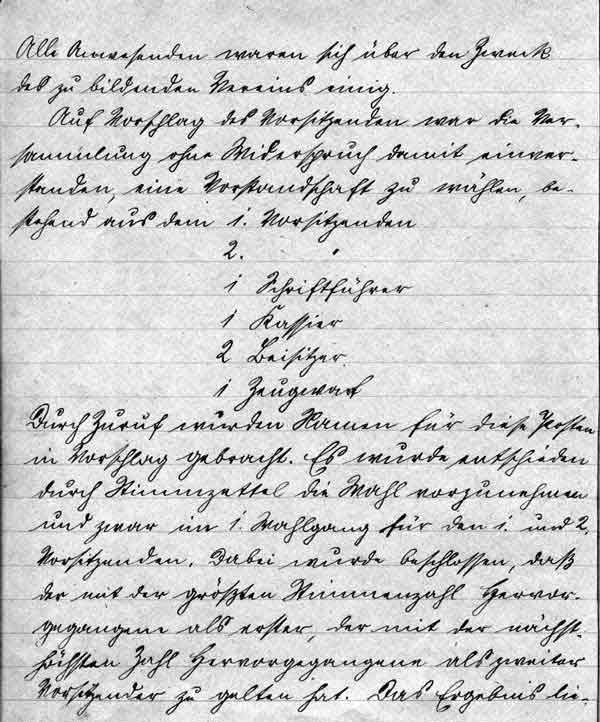 Alle Anwesenden waren sich über den Zweck
des zu bildenden Vereins einig.
Auf Vorschlag des Vorsitzenden war die Ver-
sammlung ohne Widerspruch damit einver-
standen, eine Vorstandschaft zu wählen, be-
stehend aus dem 1. Vorsitzenden
2. "
1 Schriftführer
1 Kassier
2 Beisitzer
1 Zeugwart
Durch Zuruf wurden Namen für diese Posten
in Vorschlag gebracht. Es wurde entschieden
durch Stimmzettel die Wahl vorzunehmen
und zwar im 1. Wahlgang für den 1. und 2.
Vorsitzenden. Dabei wurde beschlossen, daß
der mit der größten Stimmenzahl Hervor-
gegangene als erster, der mit der nächst-
höchsten Zahl Hervorgegangene als zweiter
Vorsitzender zu gelten hat. Das Ergebnis lie-